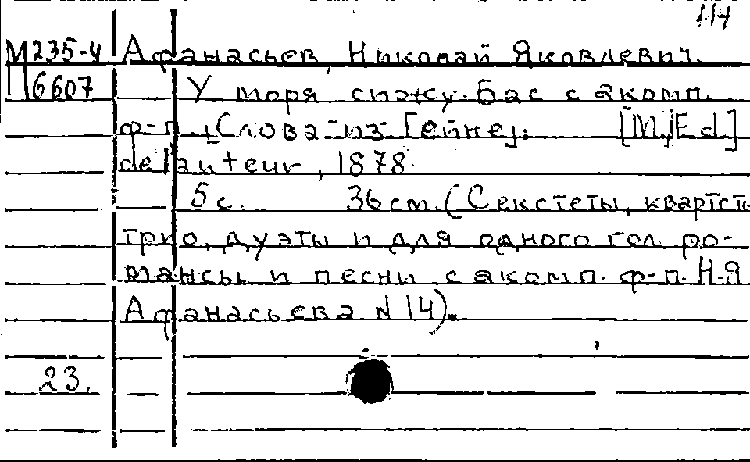 114
М 235-4 Афанасьев, Николай Яковлевич.
П 6607 У моря сижу. Бас с акомп.
ф-п. [Слова из Гейне]. [М.] Ed.
de l'auteur, 1878.
5 с. 36 см. (Секстеты, квартеты
трио, дуэты и для одного гол. ро-
мансы и песни с акомп. ф-п. Н.Я
Афанасьева N 14).
23.